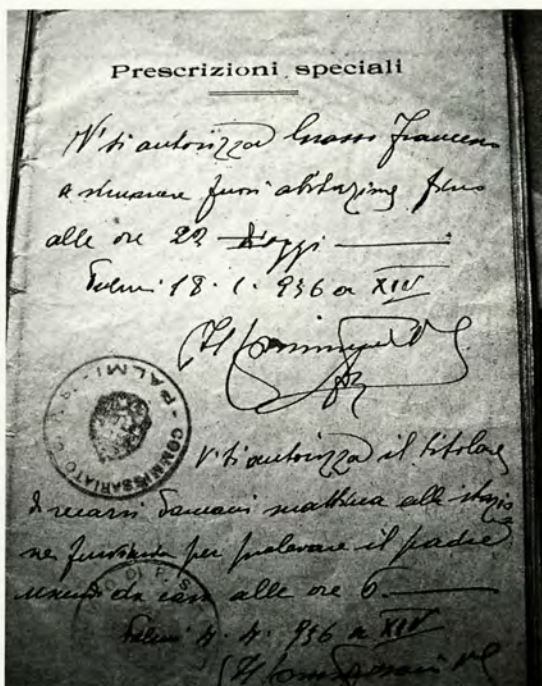 Prescrizioni speciali
V° si autorizza Grasso Francesco
a rimanere fuori abitazione fino
alle ore 22 d'oggi
Palmi 18. 1. 936 a XIV
Il
COMMISSARIATO PALMI
V° si autorizza il titolare
di recarsi domani mattina alla stazio
ne ferroviaria per prelevare il padre
uscendo da casa alle ore 6.
DI P. S.
Palmi 4. 4. 936 a XIV
Il